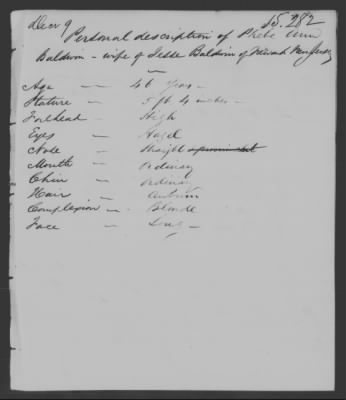 Decr 9
15.282
Personal description of Phebe Ann
Baldwin - wife of Jesse Baldwin of Newark New Jersey
Age — 46 years -
Stature — 5 ft. 4 inches -
Forehead - High
Eyes — Hazel
Nose — Straight
Mouth — ordinary
Chin — ordinary
Hair — Auburn
Complexion — Blonde
Face — Long -